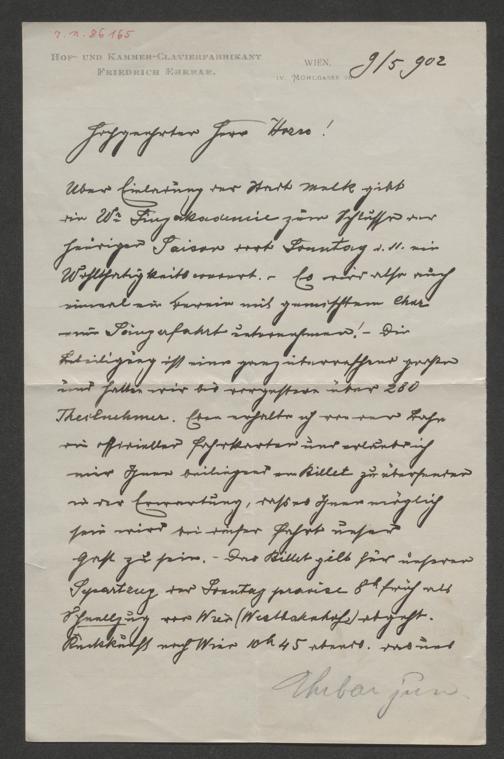 r. n. 86165
HOF- UND KAMMER-CLAVIERFABRIKANT
FRIEDRICH EHRBAR.
WIEN,
IV. MÜHLGASSE
9/5 902
Hochgeehrter Herr !
Über Einladung der Stadt Melk gibt
die Wr. Singakademie zum Schlusse der
heurigen Saison dort Sonntag d. 11. ein
Wohlthätigkeitsconcert. – Es wird also auch
einmal ein Verein mit gemischtem Chor
eine Sängerfahrt unternehmen! – Die
Beteiligung ist eine ganz überraschend große
und hatten wir bis vorgestern über 280
Theilnehmer. Eben erhalte ich von der Bahn
die officiellen Fahrkarten und erlaube ich
mir Ihnen beiliegend ein Billet zu übersenden
in der Erwartung, dass es Ihnen möglich
sein wird bei dieser Fahrt unser
Gast zu sein. – Das Billet gilt für unseren
Separatzug der Sonntag präcise 8h früh als
Schnellzug von Wien (Westbahnhof) abgeht.
Rückkunft nach Wien 10h 45 abends. 
Ehrbar jun.